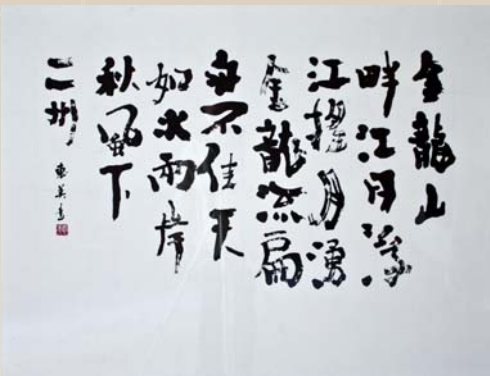 金龍山
畔江月浮
江摇月湧
金龍流扁
舟不住天
如水兩岸
秋風下
二州
英書